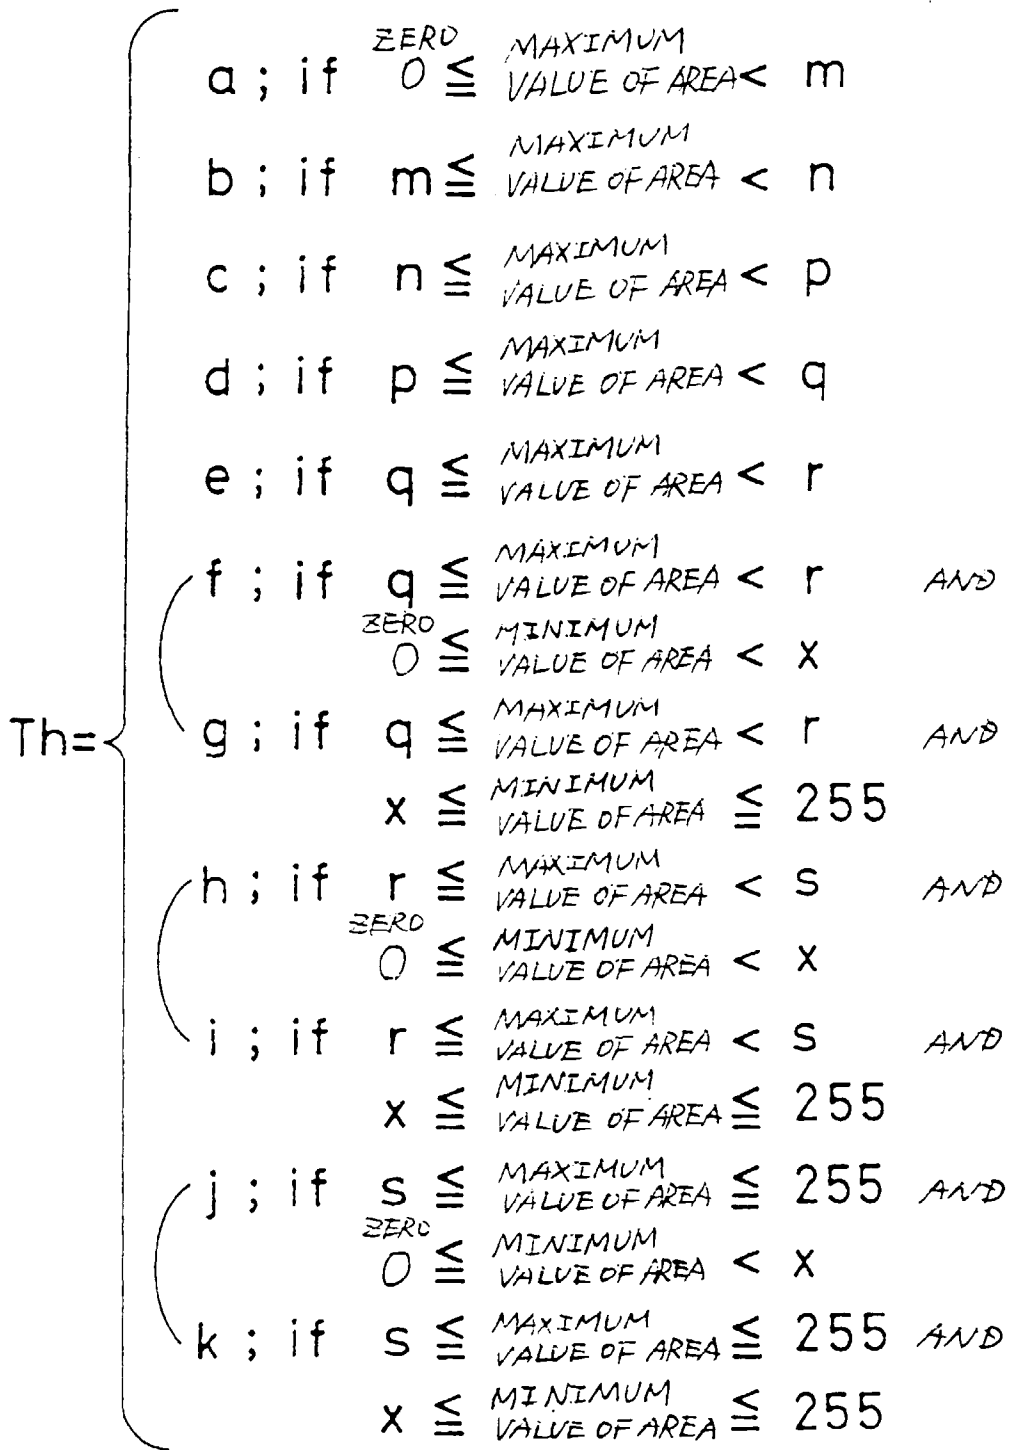 a ; if ZERO 0 ≦ MAXIMUM VALUE OF AREA < m
b ; if m ≦ MAXIMUM VALUE OF AREA < n
c ; if n ≦ MAXIMUM VALUE OF AREA < p
d ; if p ≦ MAXIMUM VALUE OF AREA < q
e ; if q ≦ MAXIMUM VALUE OF AREA < r
f ; if q ≦ MAXIMUM VALUE OF AREA < r AND
ZERO 0 ≦ MINIMUM VALUE OF AREA < x
Th=
g ; if q ≦ MAXIMUM VALUE OF AREA < r AND
x ≦ MINIMUM VALUE OF AREA ≦ 255
h ; if r ≦ MAXIMUM VALUE OF AREA < s AND
ZERO 0 ≦ MINIMUM VALUE OF AREA < x
i ; if r ≦ MAXIMUM VALUE OF AREA < s AND
x ≦ MINIMUM VALUE OF AREA ≦ 255
j ; if s ≦ MAXIMUM VALUE OF AREA ≦ 255 AND
ZERO 0 ≦ MINIMUM VALUE OF AREA < x
k ; if s ≦ MAXIMUM VALUE OF AREA ≦ 255 AND
x ≦ MINIMUM VALUE OF AREA ≦ 255